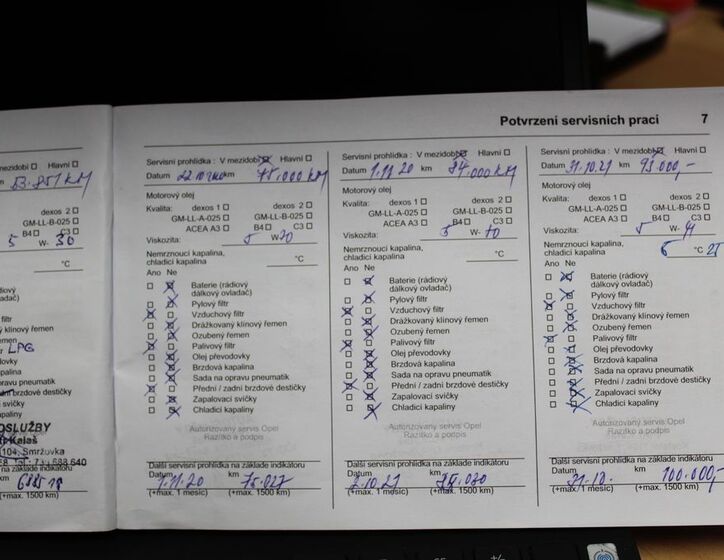 Potvrzení servisních prací 7
mezidobí Hlavní
53.851 KM
dexos 2
GM-LL-B-025
B4 C3
5 W- 30
°C
LPG
OSLUŽBY
Kalaš
104, Smržovka
na základě indikátoru
km
(+max. 1500 km)
Servisní prohlídka : V mezidobí Hlavní
Datum km 75.000 KM
Motorový olej
Kvalita: dexos 1 dexos 2
GM-LL-A-025 GM-LL-B-025
ACEA A3 B4 C3
Viskozita: 5 W-
Nemrznoucí kapalina,
chladicí kapalina °C
Ano Ne
Baterie (rádiový
dálkový ovladač)
Pylový filtr
Vzduchový filtr
Drážkovaný klínový řemen
Ozubený řemen
Palivový filtr
Olej převodovky
Brzdová kapalina
Sada na opravu pneumatik
Přední / zadní brzdové destičky
Zapalovací svíčky
Chladicí kapaliny
Autorizovaný servis Opel
Razítko a podpis
Další servisní prohlídka na základě indikátoru
Datum km
1.11.20
(+max. 1 měsíc) (+max. 1500 km)
Servisní prohlídka : V mezidobí Hlavní
Datum 1.11.20 km 84.000 KM
Motorový olej
Kvalita: dexos 1 dexos 2
GM-LL-A-025 GM-LL-B-025
ACEA A3 B4 C3
Viskozita: 5 W-
Nemrznoucí kapalina,
chladicí kapalina °C
Ano Ne
Baterie (rádiový
dálkový ovladač)
Pylový filtr
Vzduchový filtr
Drážkovaný klínový řemen
Ozubený řemen
Palivový filtr
Olej převodovky
Brzdová kapalina
Sada na opravu pneumatik
Přední / zadní brzdové destičky
Zapalovací svíčky
Chladicí kapaliny
Autorizovaný servis Opel
Razítko a podpis
Další servisní prohlídka na základě indikátoru
Datum km
2.10.21
(+max. 1 měsíc) (+max. 1500 km)
Servisní prohlídka : V mezidobí Hlavní
Datum 31.10.21 km 93.000,-
Motorový olej
Kvalita: dexos 1 dexos 2
GM-LL-A-025 GM-LL-B-025
ACEA A3 B4 C3
Viskozita: 5 W-
Nemrznoucí kapalina,
chladicí kapalina °C
Ano Ne
Baterie (rádiový
dálkový ovladač)
Pylový filtr
Vzduchový filtr
Drážkovaný klínový řemen
Ozubený řemen
Palivový filtr
Olej převodovky
Brzdová kapalina
Sada na opravu pneumatik
Přední / zadní brzdové destičky
Zapalovací svíčky
Chladicí kapaliny
Autorizovaný servis Opel
Razítko a podpis
Další servisní prohlídka na základě indikátoru
Datum km
31.10. 100.000,-
(+max. 1 měsíc) (+max. 1500 km)